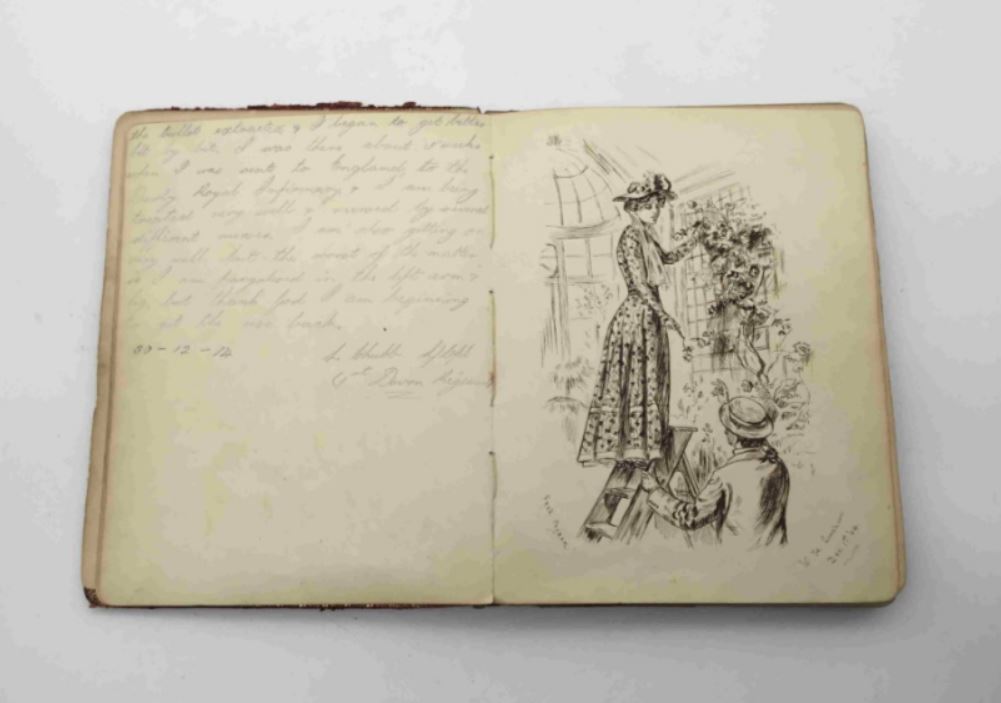 the bullet extracted & I began to get better
bit by bit. I was there about weeks
when I was sent to England to the
Derby Royal Infirmary & I am being
treated very well & nursed by several
different nurses. I am also getting on
very well but the worst of the matter
is I am paralysed in the left arm &
leg, but thank God I am beginning
to get the use back.
30-12-14
Chubb
1st Devon Regiment
38
Dec 17 '14